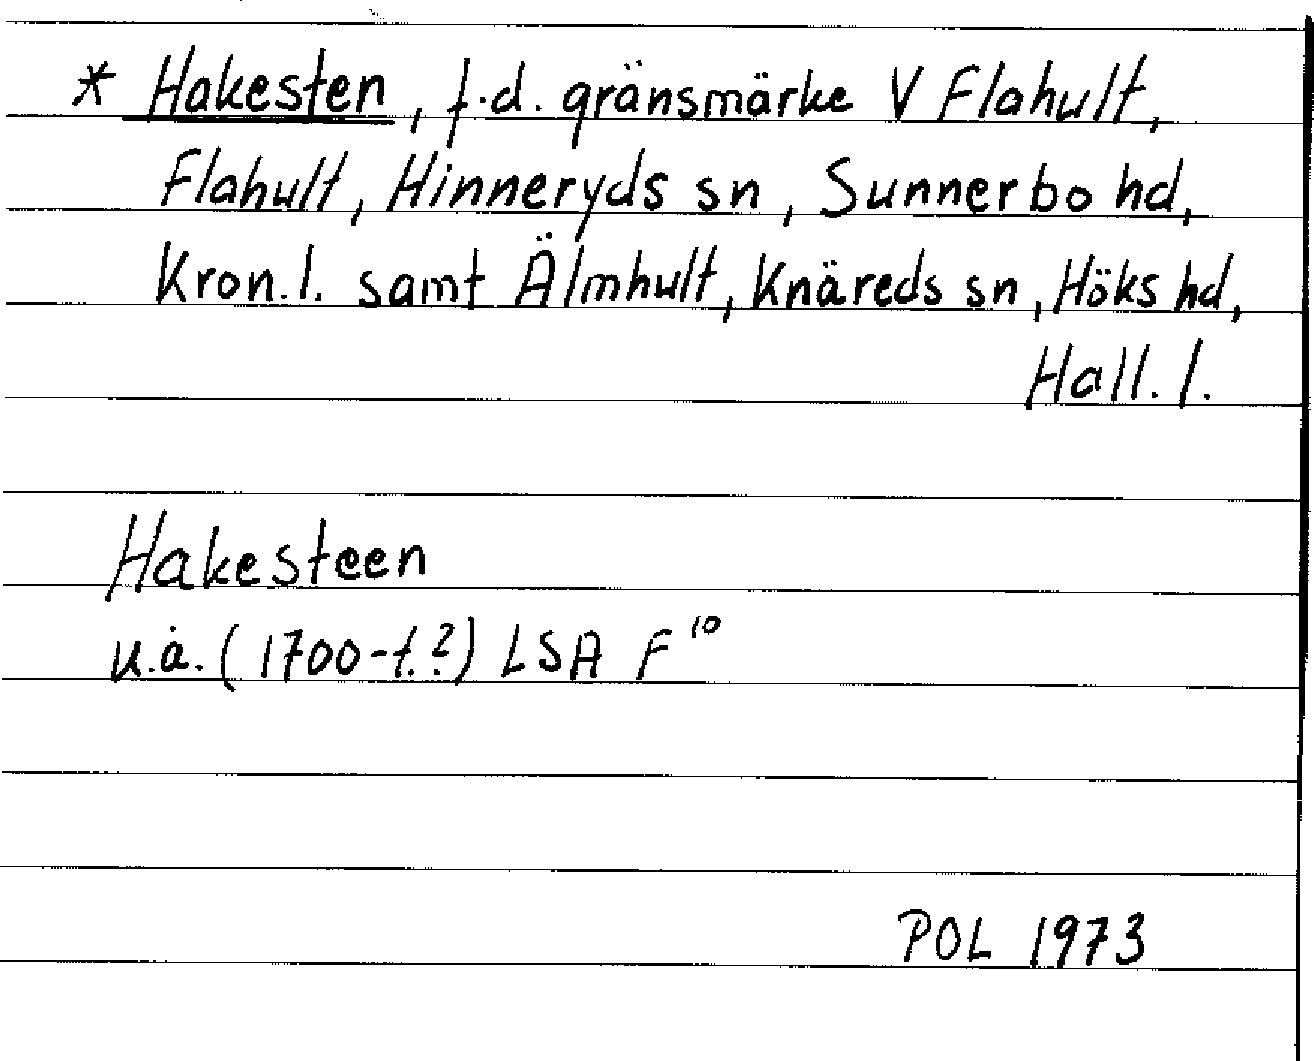 * Hakesten, f.d. gränsmärke V Flahult,
Flahult, Hinneryds sn, Sunnerbo hd,
Kron. l. samt Älmhult, Knäreds sn, Höks hd,
Hall. l.
Hakesteen
u.å. (1700-t.?) LSA F¹⁰
POL 1973